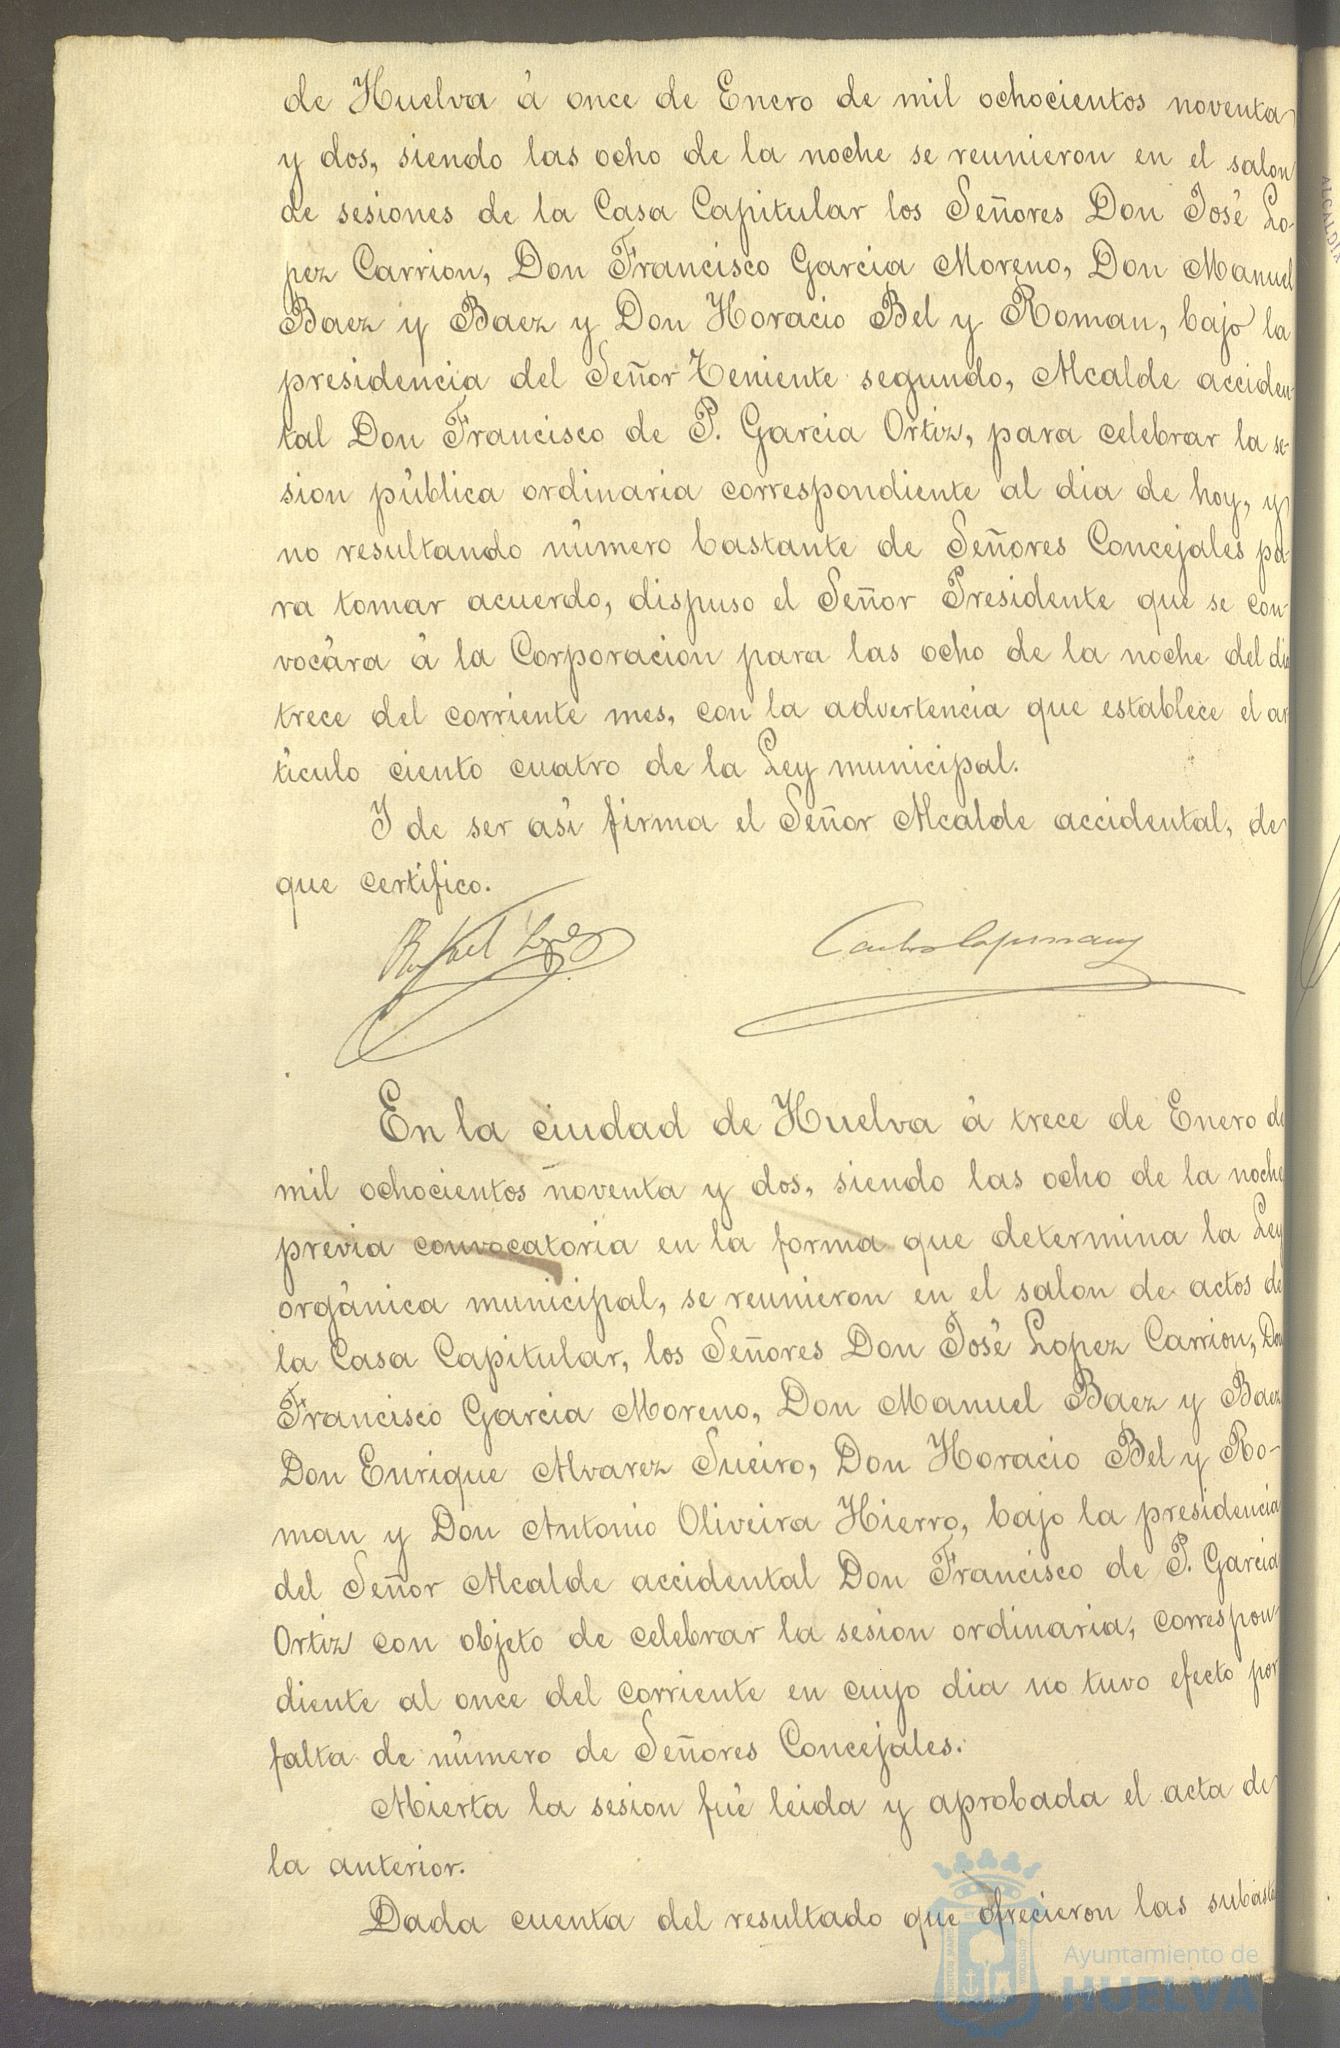 de Huelva á once de Enero de mil ochocientos noventa
y dos, siendo las ocho de la noche se reunieron en el salon
de sesiones de la Casa Capitular los Señores Don José Lo-
pez Carrion, Don Francisco Garcia Moreno, Don Manuel
Baez y Baez y Don Horacio Bel y Roman, bajo la
presidencia del Señor Teniente segundo, Alcalde acciden-
tal Don Francisco de P. Garcia Ortiz, para celebrar la se-
sion pública ordinaria correspondiente al dia de hoy, y
no resultando número bastante de Señores Concejales pa-
ra tomar acuerdo, dispuso el Señor Presidente que se con-
vocára á la Corporacion para las ocho de la noche del dia
trece del corriente mes, con la advertencia que establece el ar
tículo ciento cuatro de la Ley municipal.
Y de ser así firma el Señor Alcalde accidental, de
que certifico.
En la ciudad de Huelva á trece de Enero de
mil ochocientos noventa y dos, siendo las ocho de la noche
previa convocatoria en la forma que determina la Ley
orgánica municipal, se reunieron en el salon de actos de
la Casa Capitular, los Señores Don José Lopez Carrion, Don
Francisco Garcia Moreno, Don Manuel Baez y Baez
Don Enrique Alvarez Sueiro, Don Horacio Bel y Ro-
man y Don Antonio Oliveira Hierro, bajo la presidencia
del Señor Alcalde accidental Don Francisco de P. Garcia
Ortiz con objeto de celebrar la sesion ordinaria, correspon-
diente al once del corriente en cuyo dia no tuvo efecto por
falta de número de Señores Concejales.
Abierta la sesion fué leida y aprobada el acta de
la anterior.
Dada cuenta del resultado que ofrecieron las subasta
Ayuntamiento de
HUELVA
ALCALDIA